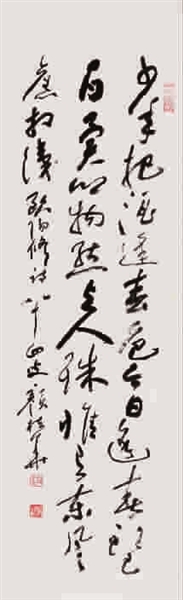 少年把酒逢春色今日逢春头已
白异乡物态与人殊惟有东风
旧相识欧阳修诗八十四岁颜梅华